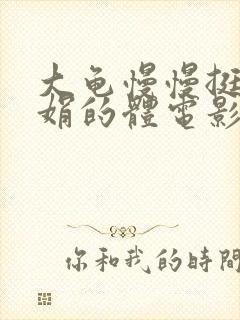 大龟慢慢挺
娟的體電影
你和我的時間